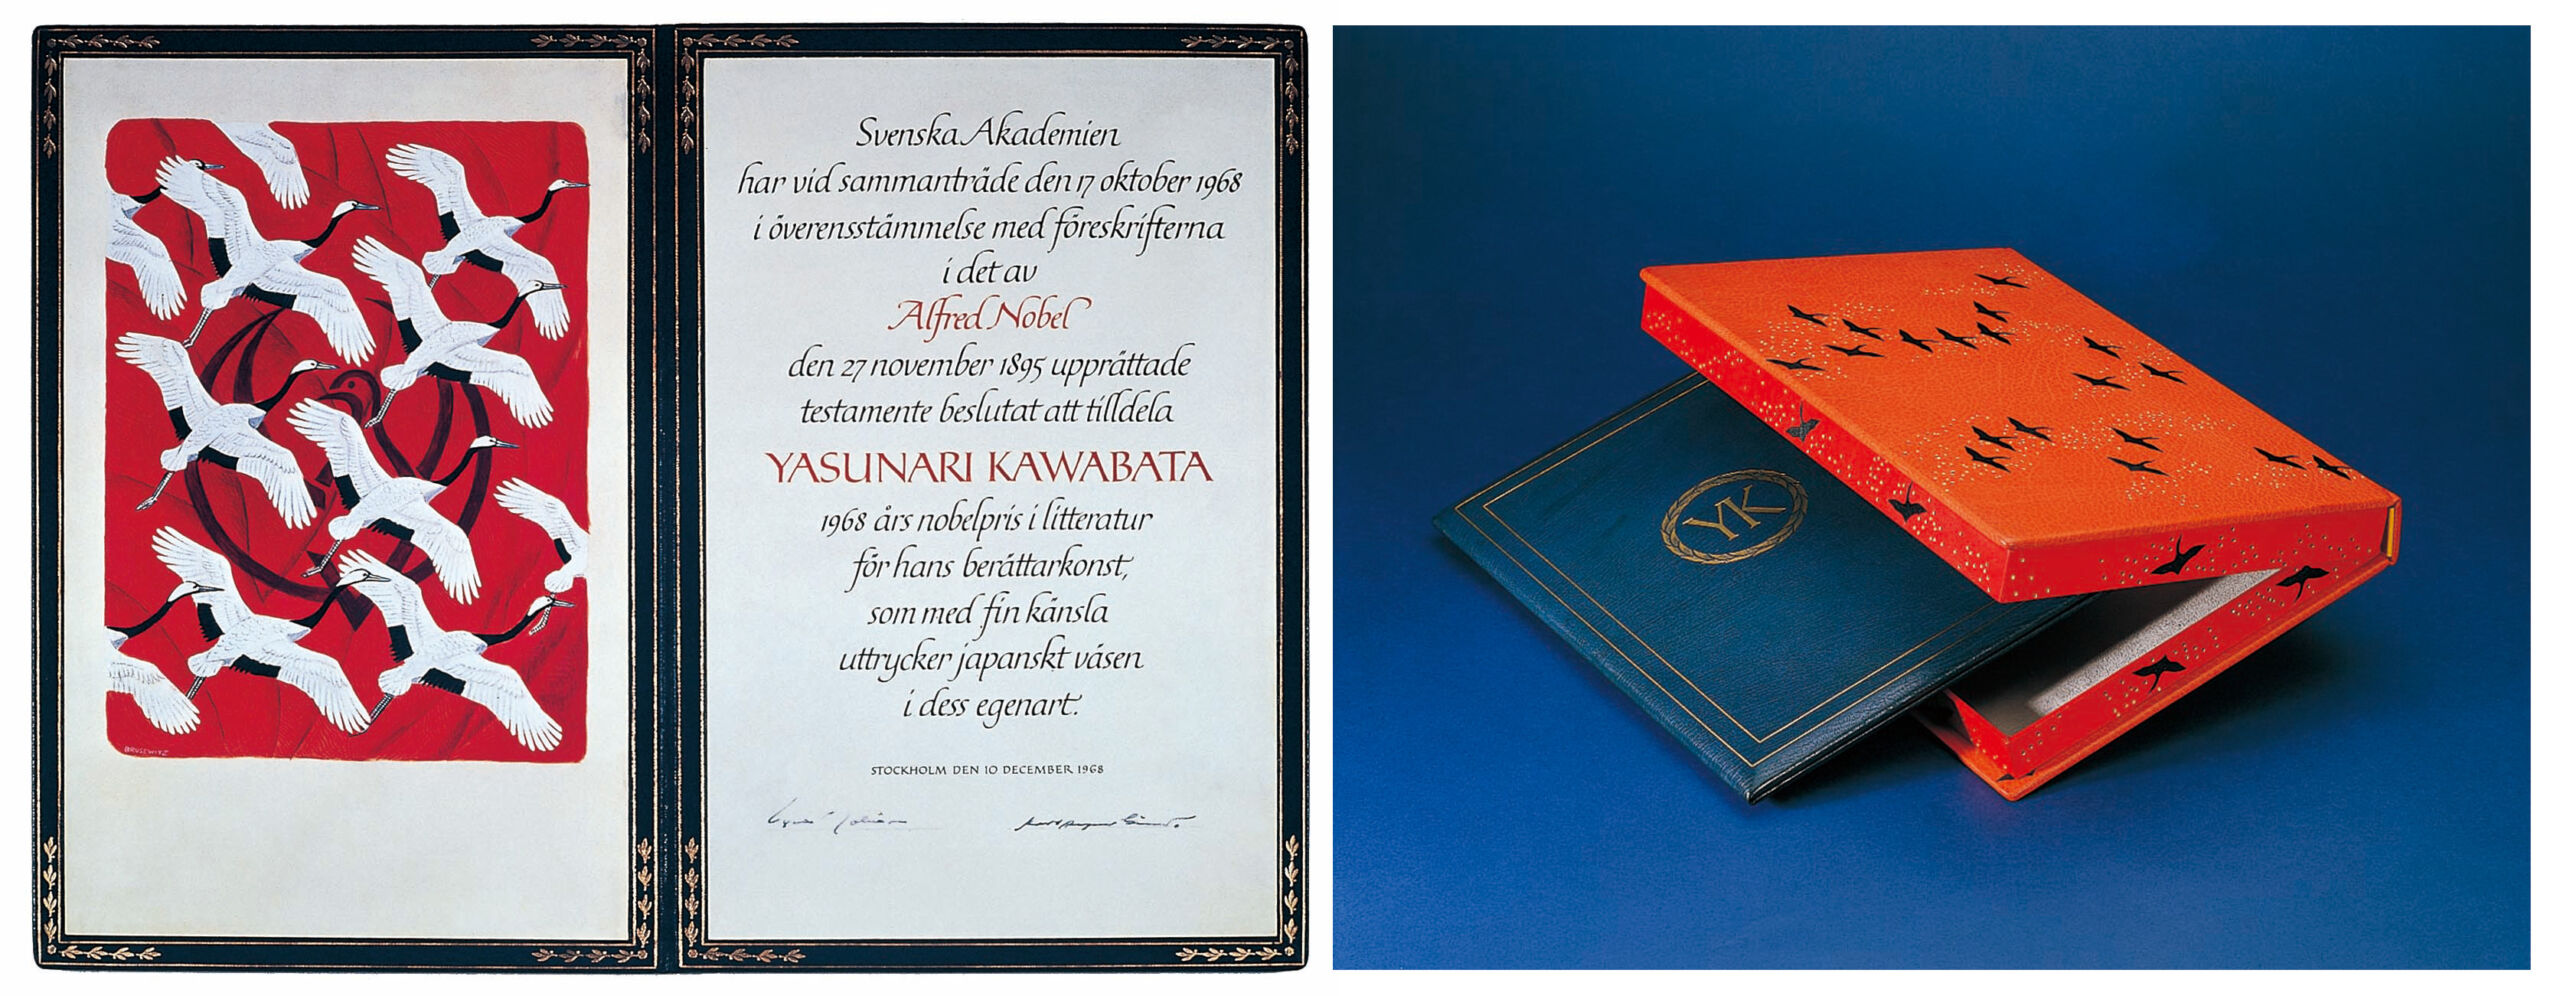 BRUSEWITZ
Svenska Akademien
har vid sammanträde den 17 oktober 1968
i överensstämmelse med föreskrifterna
i det av
Alfred Nobel
den 27 november 1895 upprättade
testamente beslutat att tilldela
YASUNARI KAWABATA
1968 års nobelpris i litteratur
för hans berättarkonst,
som med fin känsla
uttrycker japanskt väsen
i dess egenart.
STOCKHOLM DEN 10 DECEMBER 1968
YK